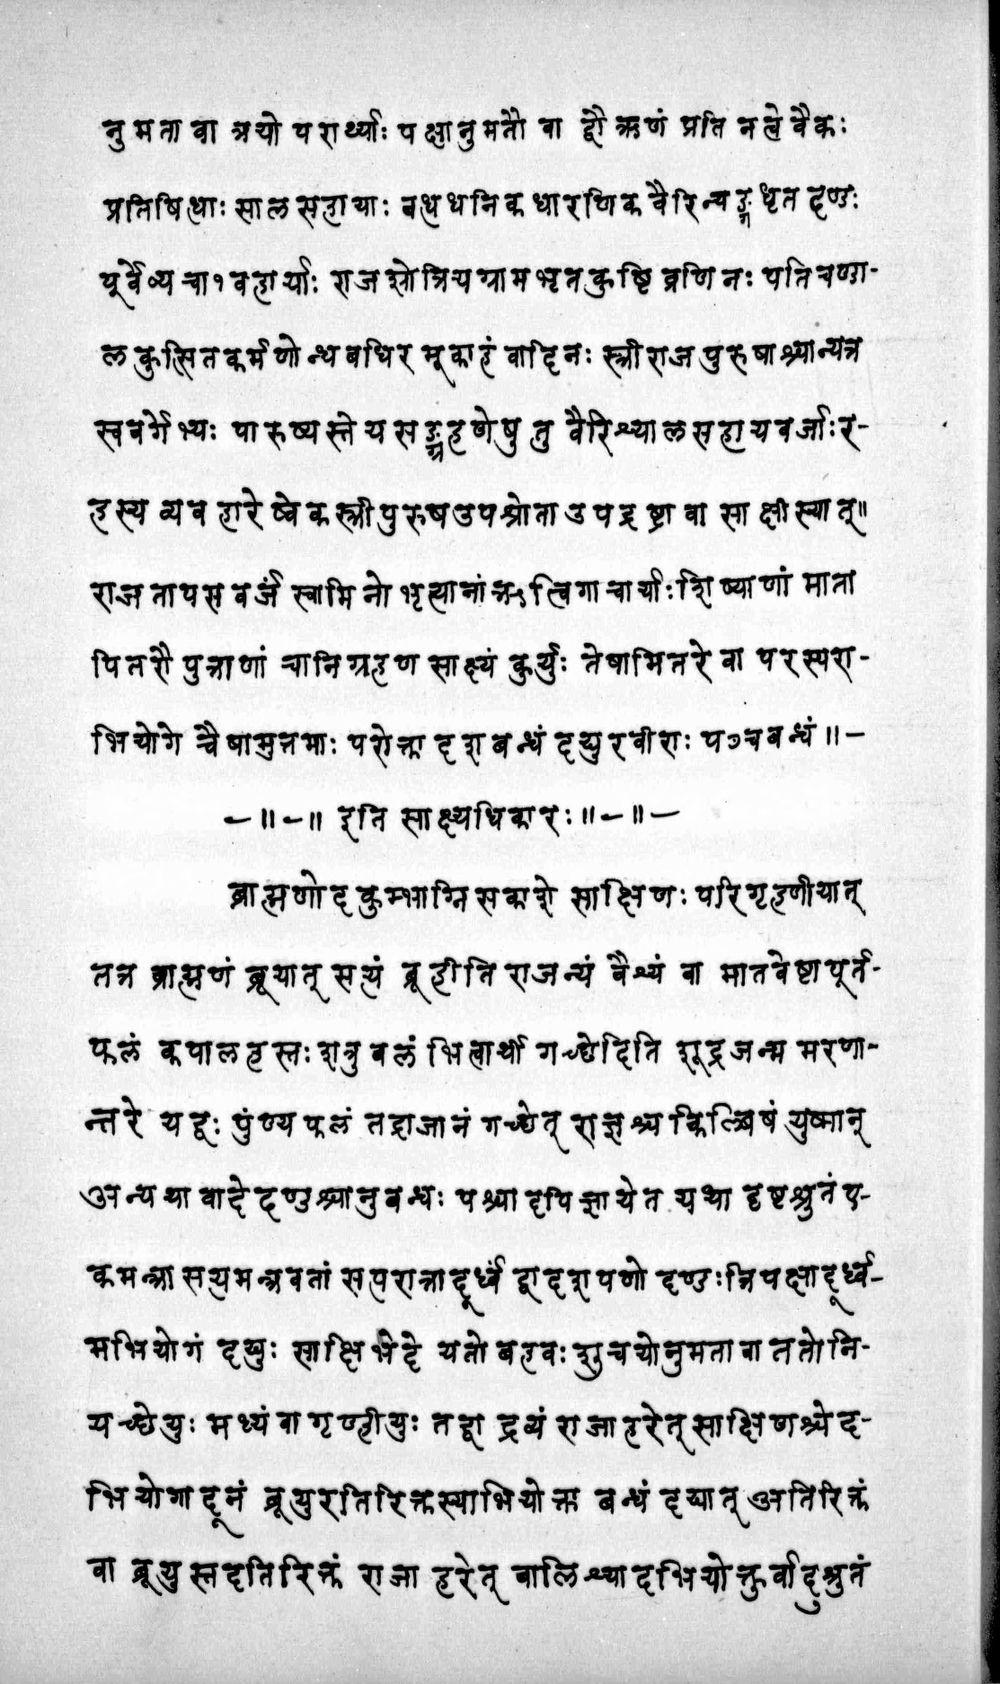 नुमतावा त्रयो परार्थ्याः पक्षानुमतौ वा द्वौ ऋणं प्रति नत्वेवैकः
प्रतिषिध्याः सालसहायाः बध्धधनिकधारणिकवैरिन्यङ्गधृतदण्डः
पूर्वेव्यचा१वहार्याः राजश्रोत्रियग्रामभृतकुष्टिव्रणिनः पतिचण्डा-
लकुत्सितकर्मणोन्धबधिरमूकाहंवादिनः स्त्रीराजपुरुषाश्चान्यत्र
स्ववर्गेभ्यः पारुष्यस्तेयसङ्ग्रहणेषु तु वैरिश्यालसहायवर्जाःर-
हस्यव्यवहारेष्वेकस्त्रीपुरुषउपश्रोताउपद्रष्टावा साक्षीस्यात्॥
राजतापसवर्जं स्वामिनोभृत्यानांऋत्विगाचार्याःशिष्याणां माता
पितरौ पुत्राणां चानिग्रहणसाक्ष्यं कुर्युः तेषामितरे वा परस्परा-
भियोगे चैषामुत्तमाः परोक्तादशबन्धं दद्युरवीराः पञ्चबन्धं॥—
—॥—॥ इति साक्ष्यधिकारः॥—॥—
ब्राह्मणोदकुम्भाग्निसकाशे साक्षिणः परिगृह्णीयात्
तत्र ब्राह्मणं ब्रूयात् सत्यं ब्रूहीति राजन्यं वैश्यं वा मातवेष्टापूर्त-
फलं कपालहस्तःशत्रुबलं भित्वार्थी गच्छेदिति शूद्रजन्ममरणा-
न्तरे यद्वः पुंण्यफलं तद्राजानं गच्छेत् राज्ञश्चकिल्बिषं युष्मान्
अन्यथावादेदण्डश्चानुबन्धः पश्चादपिज्ञायेत यथा दृष्टश्रुतं ए-
कमन्त्रासत्यमन्त्रवतां सप्तरात्रादूर्ध्वं द्वादशपणो दण्डःत्रिपक्षादूर्ध्व-
मभियोगं दद्युः साक्षिभेदे यतो बहवःशुचयोनुमतावा ततोनि-
यच्छेयुः मध्यं वा गृण्हीयुः तद्वा द्रव्यं राजाहरेत् साक्षिणश्चेद-
भियोगादूनं ब्रूयुरतिरिक्तस्याभियोक्ता बन्धं दद्यात् अतिरिक्तं
वा ब्रूयुस्तदतिरिक्तं राजा हरेत् बालिश्यादभियोक्तुर्वादुश्रुतं